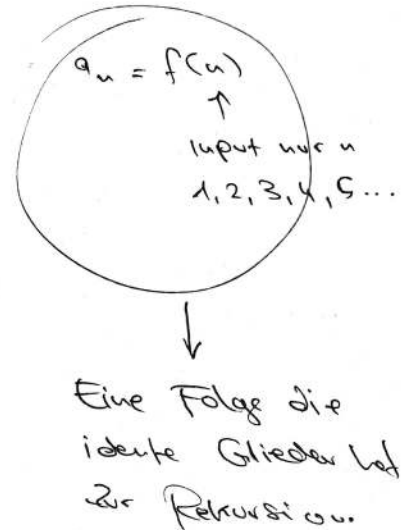 aₙ = f(n)
↑
Input nur n
1, 2, 3, 4, 5 ...
↓
Eine Folge die
idente Glieder hat
zur Rekursion.